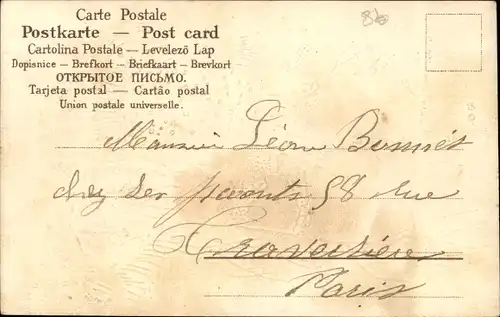 Carte Postale
Postkarte — Post card
Cartolina Postale — Levelező Lap
Dopisnice — Brefkort — Briefkaart — Brevkort
ОТКРЫТОЕ ПИСЬМО.
Tarjeta postal — Cartão postal
Union postale universelle.
86
Monsieur Léon
chez ses parents 58 rue
Traversière
Paris